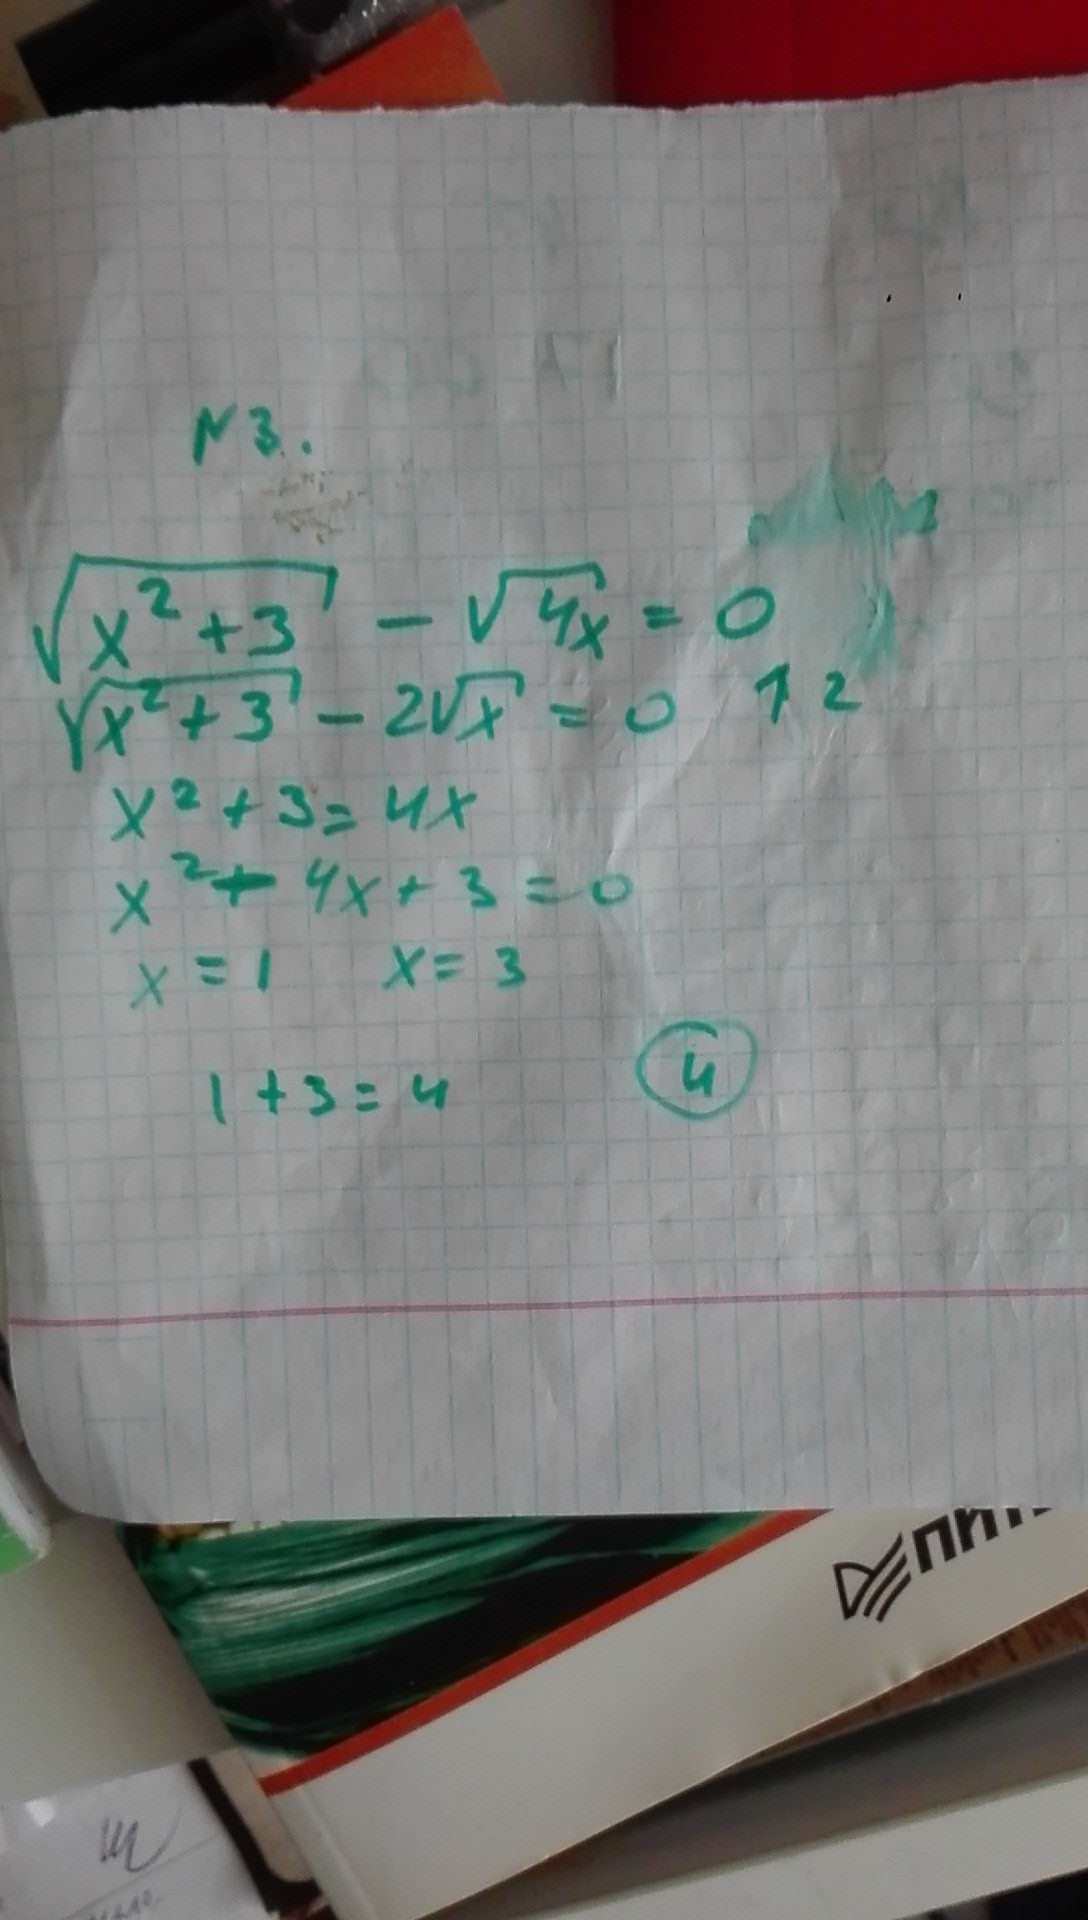 N3.
√(x²+3) - √(4x) = 0
√(x²+3) - 2√x = 0 ↑2
x² + 3 = 4x
x² - 4x + 3 = 0
x = 1 x = 3
1 + 3 = 4 4